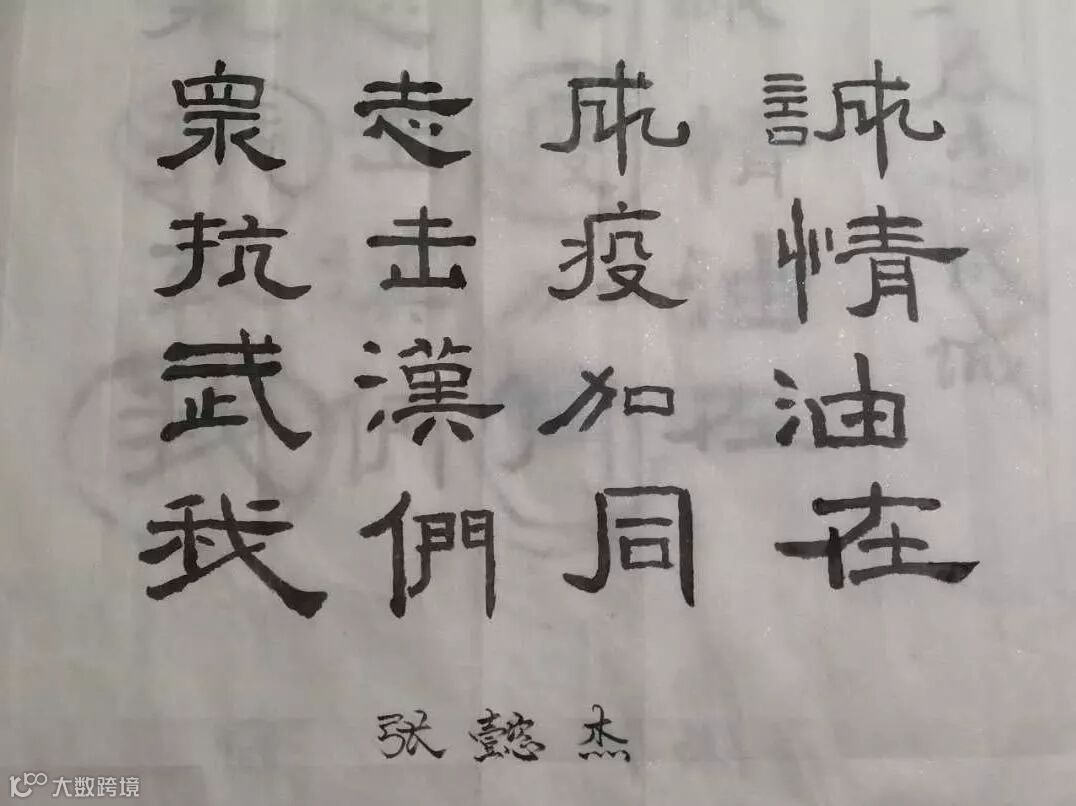 眾志成誠
抗击疫情
武漢加油
我們同在
张懿杰
大数跨境